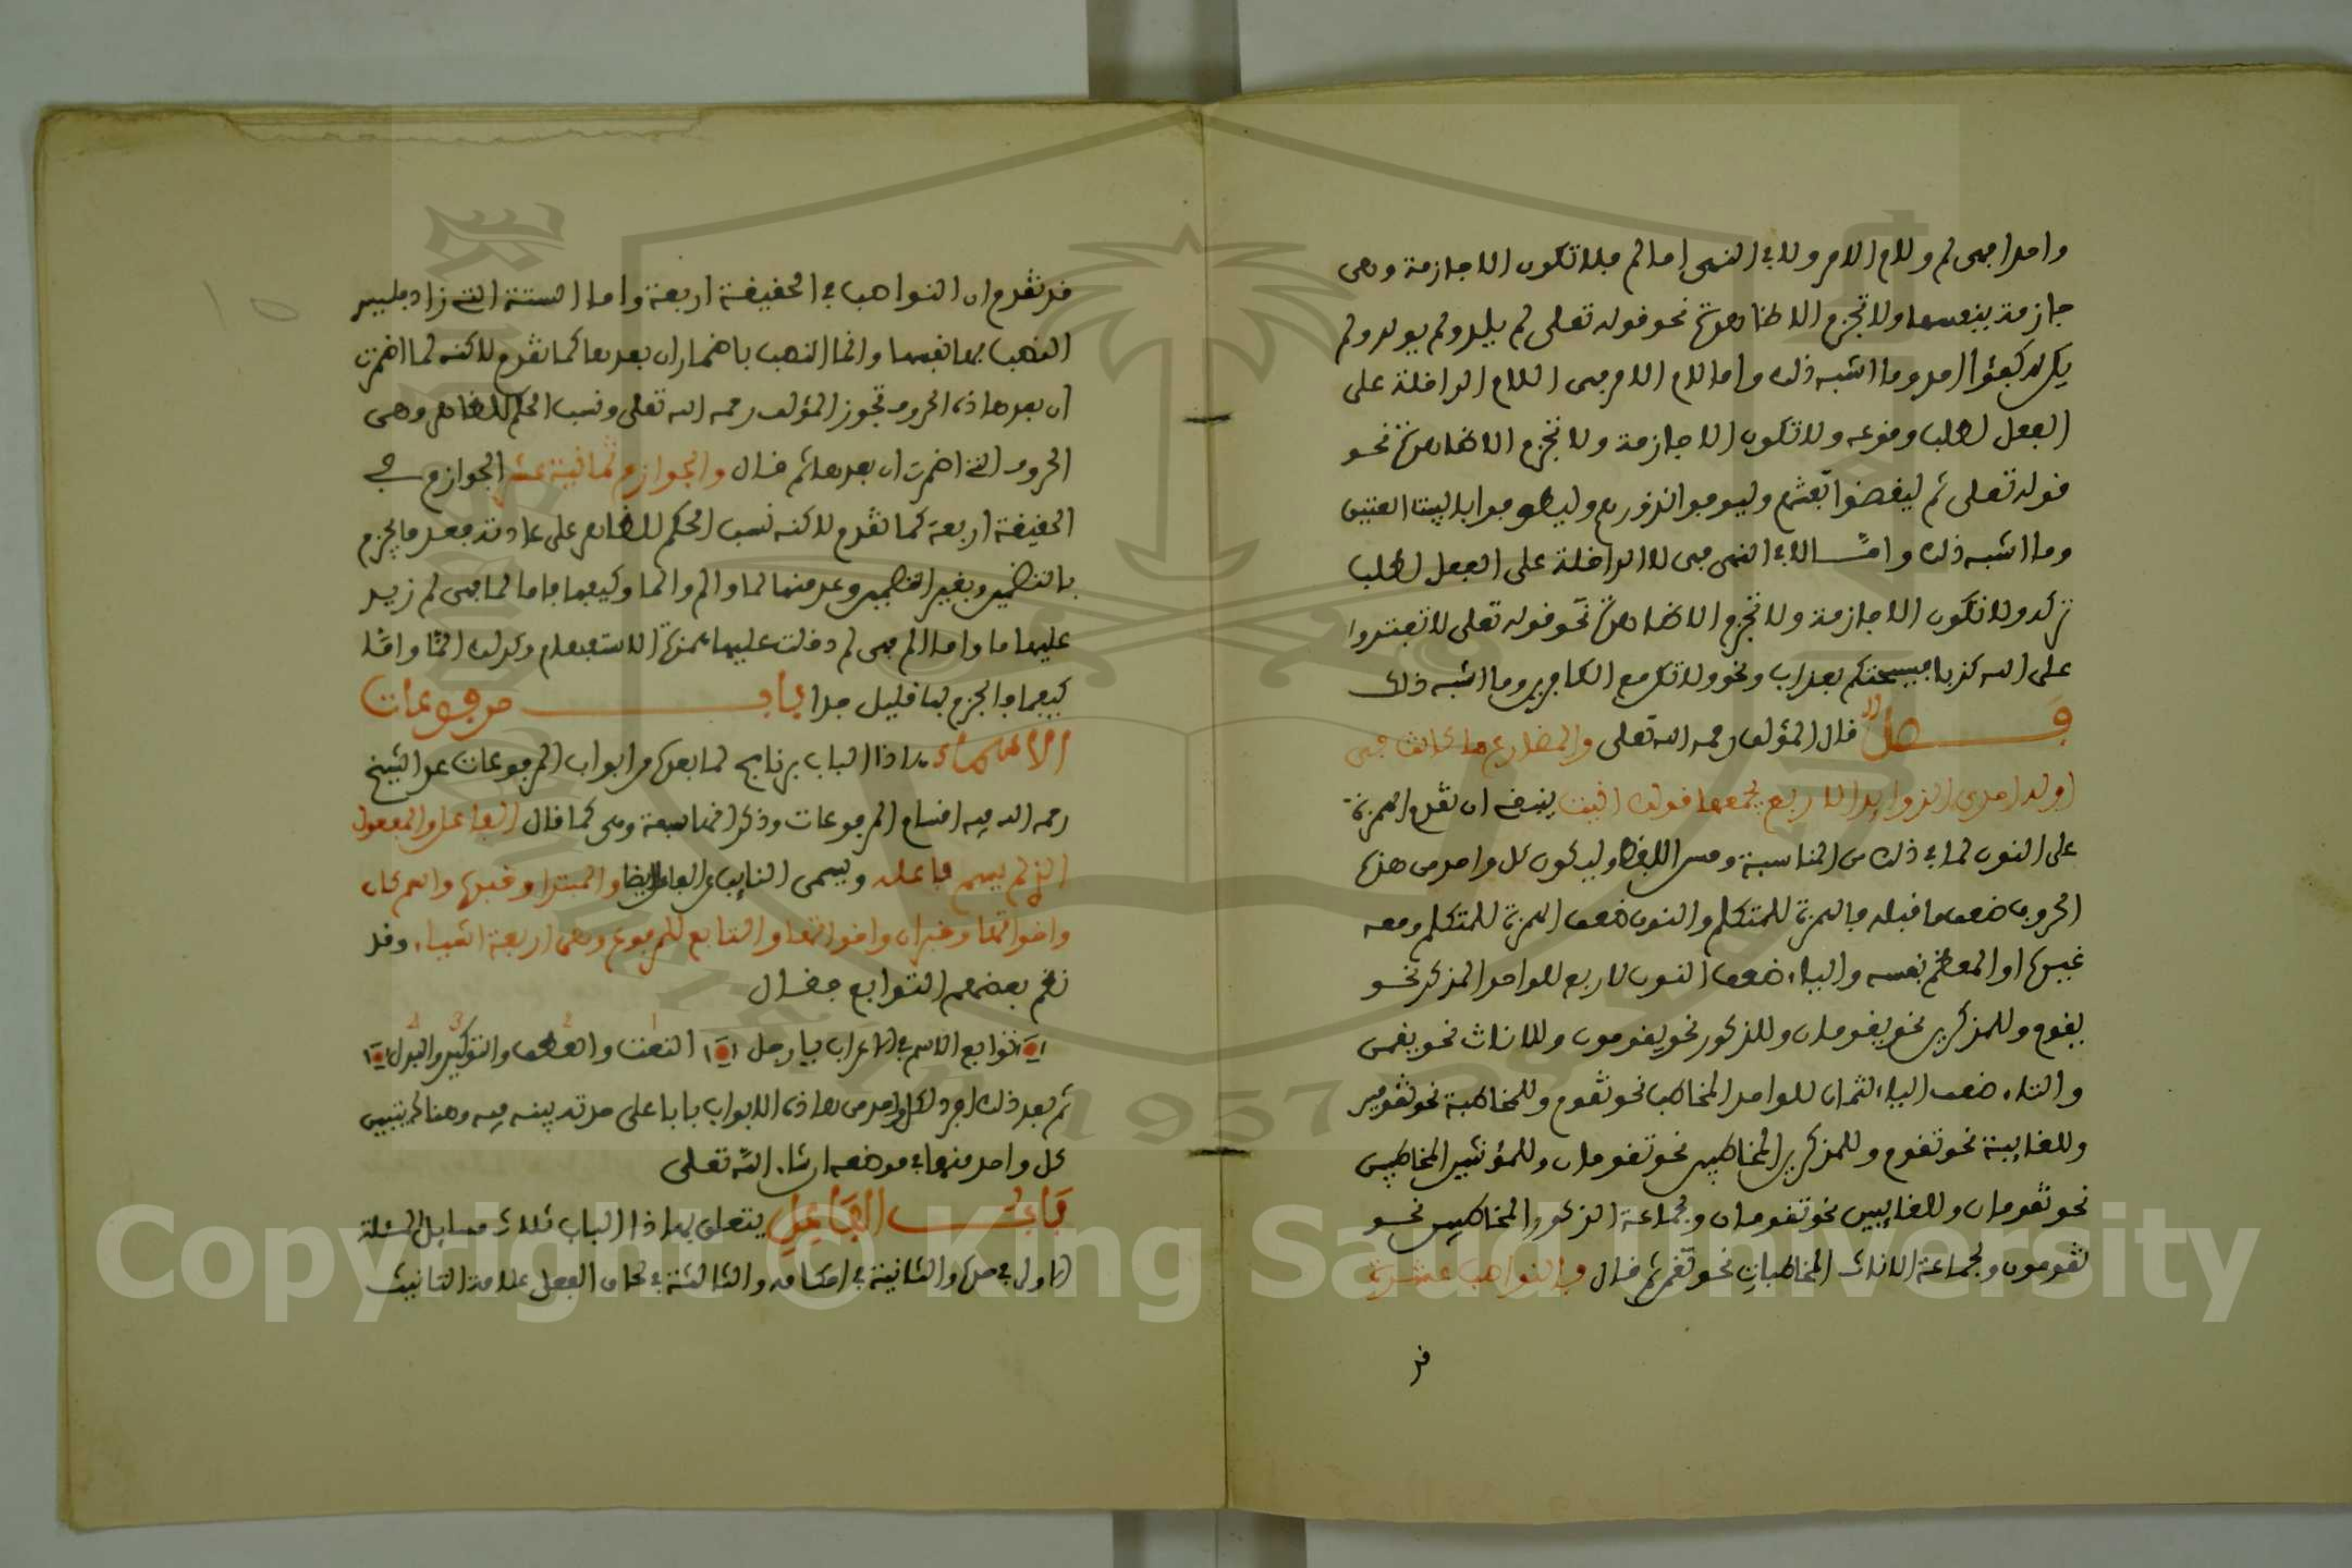 واحدا فهى لم ولام الامر ولا في النهى اما لم فلا تكون الا جازمة وهى
جازمة بنفسها ولا تجزم الا ظاهرا نحو قوله تعلى لم يلد ولم يولد ولم
يكن له كفؤا احد وما اشبه ذلك واما لام الامر فهى اللام الداخلة على
الفعل لطلب وقوعه ولا تكون الا جازمة ولا تجزم الا ظاهرا نحو
قوله تعلى ثم ليقضوا تفثهم وليوفوا نذورهم وليطوفوا بالبيت العتيق
وما اشبه ذلك وامّا لا في النهى فهى لا الداخلة على الفعل لطلب
تركه ولا تكون الا جازمة ولا تجزم الا ظاهرا نحو قوله تعلى لا تفتروا
على الله كذبا فيسحتكم بعذاب ونحو ولا تكن مع الكافرين وما اشبه ذلك
فصل قال المؤلف رحمه الله تعلى والمضارع ما كان في
اوله احدى الزوايد الاربع يجمعها قولك انيت ينبغى ان تقدم الهمزة
على النون لما في ذلك من المناسبة وحسن اللفظ وليكون كل واحد من هذه
الحروف ضعف ما قبله فالهمزة للمتكلم والنون ضعف الهمزة للمتكلم ومعه
غيره او المعظم نفسه والياء ضعف النون لاربع للواحد المذكر نحو
يقوم وللمذكرين نحو يقومان وللذكور نحو يقومون وللاناث نحو يقمن
والتاء ضعف الياء لثمان للواحد المخاطب نحو تقوم وللمخاطبة نحو تقومين
وللغايبة نحو تقوم وللمذكرين المخاطبين نحو تقومان وللمؤنثين المخاطبين
نحو تقومان وللغايبين نحو تقومان ولجماعة الذكور المخاطبين نحو
تقومون ولجماعة الاناث المخاطبات نحو تقمن ثم قال والنواصب عشرة
قد
قد تقدم ان النواصب في الحقيقة اربعة واما الستة التى زاد فليس
النصب بها نفسها وانما النصب باضمار ان بعدها كما تقدم لاكنه لما اضمرت
ان بعد هاذه الحروف تجوز المؤلف رحمه الله تعلى ونسب الحكم للظاهر وهى
الحروف التى اضمرت ان بعدها ثم قال والجوازم ثمانية عشر الجوازم في
الحقيقة اربعة كما تقدم لاكنه نسب الحكم للظاهر على عادته فعد ما يجزم
بالتضمين وبغير التضمين وعد منها لما والم والما وكيفما فاما لما فهى لم زيد
عليها ما واما الم فهى لم دخلت عليها همزة الاستفهام وكذلك المّا وامّا
كيفما فالجزم بها قليل جدا باب مرفوعات
الاسماء هاذا الباب برنامج لما بعده من ابواب المرفوعات عد الشيخ
رحمه الله فيه اقسام المرفوعات وذكر انها سبعة وهى كما قال الفاعل والمفعول
الذي لم يسم فاعله ويسمى النايب عن الفاعل ايضا والمبتدا وخبره واسم كان
واخواتها وخبر ان واخواتها والتابع للمرفوع وهى اربعة اشياء وقد
نظم بعضهم التوابع فقال
توابع الاسم في الاعراب يا رجل النعت والعطف والتوكيد والبدل
ثم بعد ذلك افرد لكل واحد من هاذه الابواب بابا على حدته بينه فيه وهناك يتبين
كل واحد منها في موضعه ان شاء الله تعلى
باب الفاعل يتعلق بهاذا الباب ثلاث مسايل المسئلة
الاولى في حده والثانية في احكامه والثالثة في لحاق الفعل علامة التانيث
Copyright © King Saud University
1957